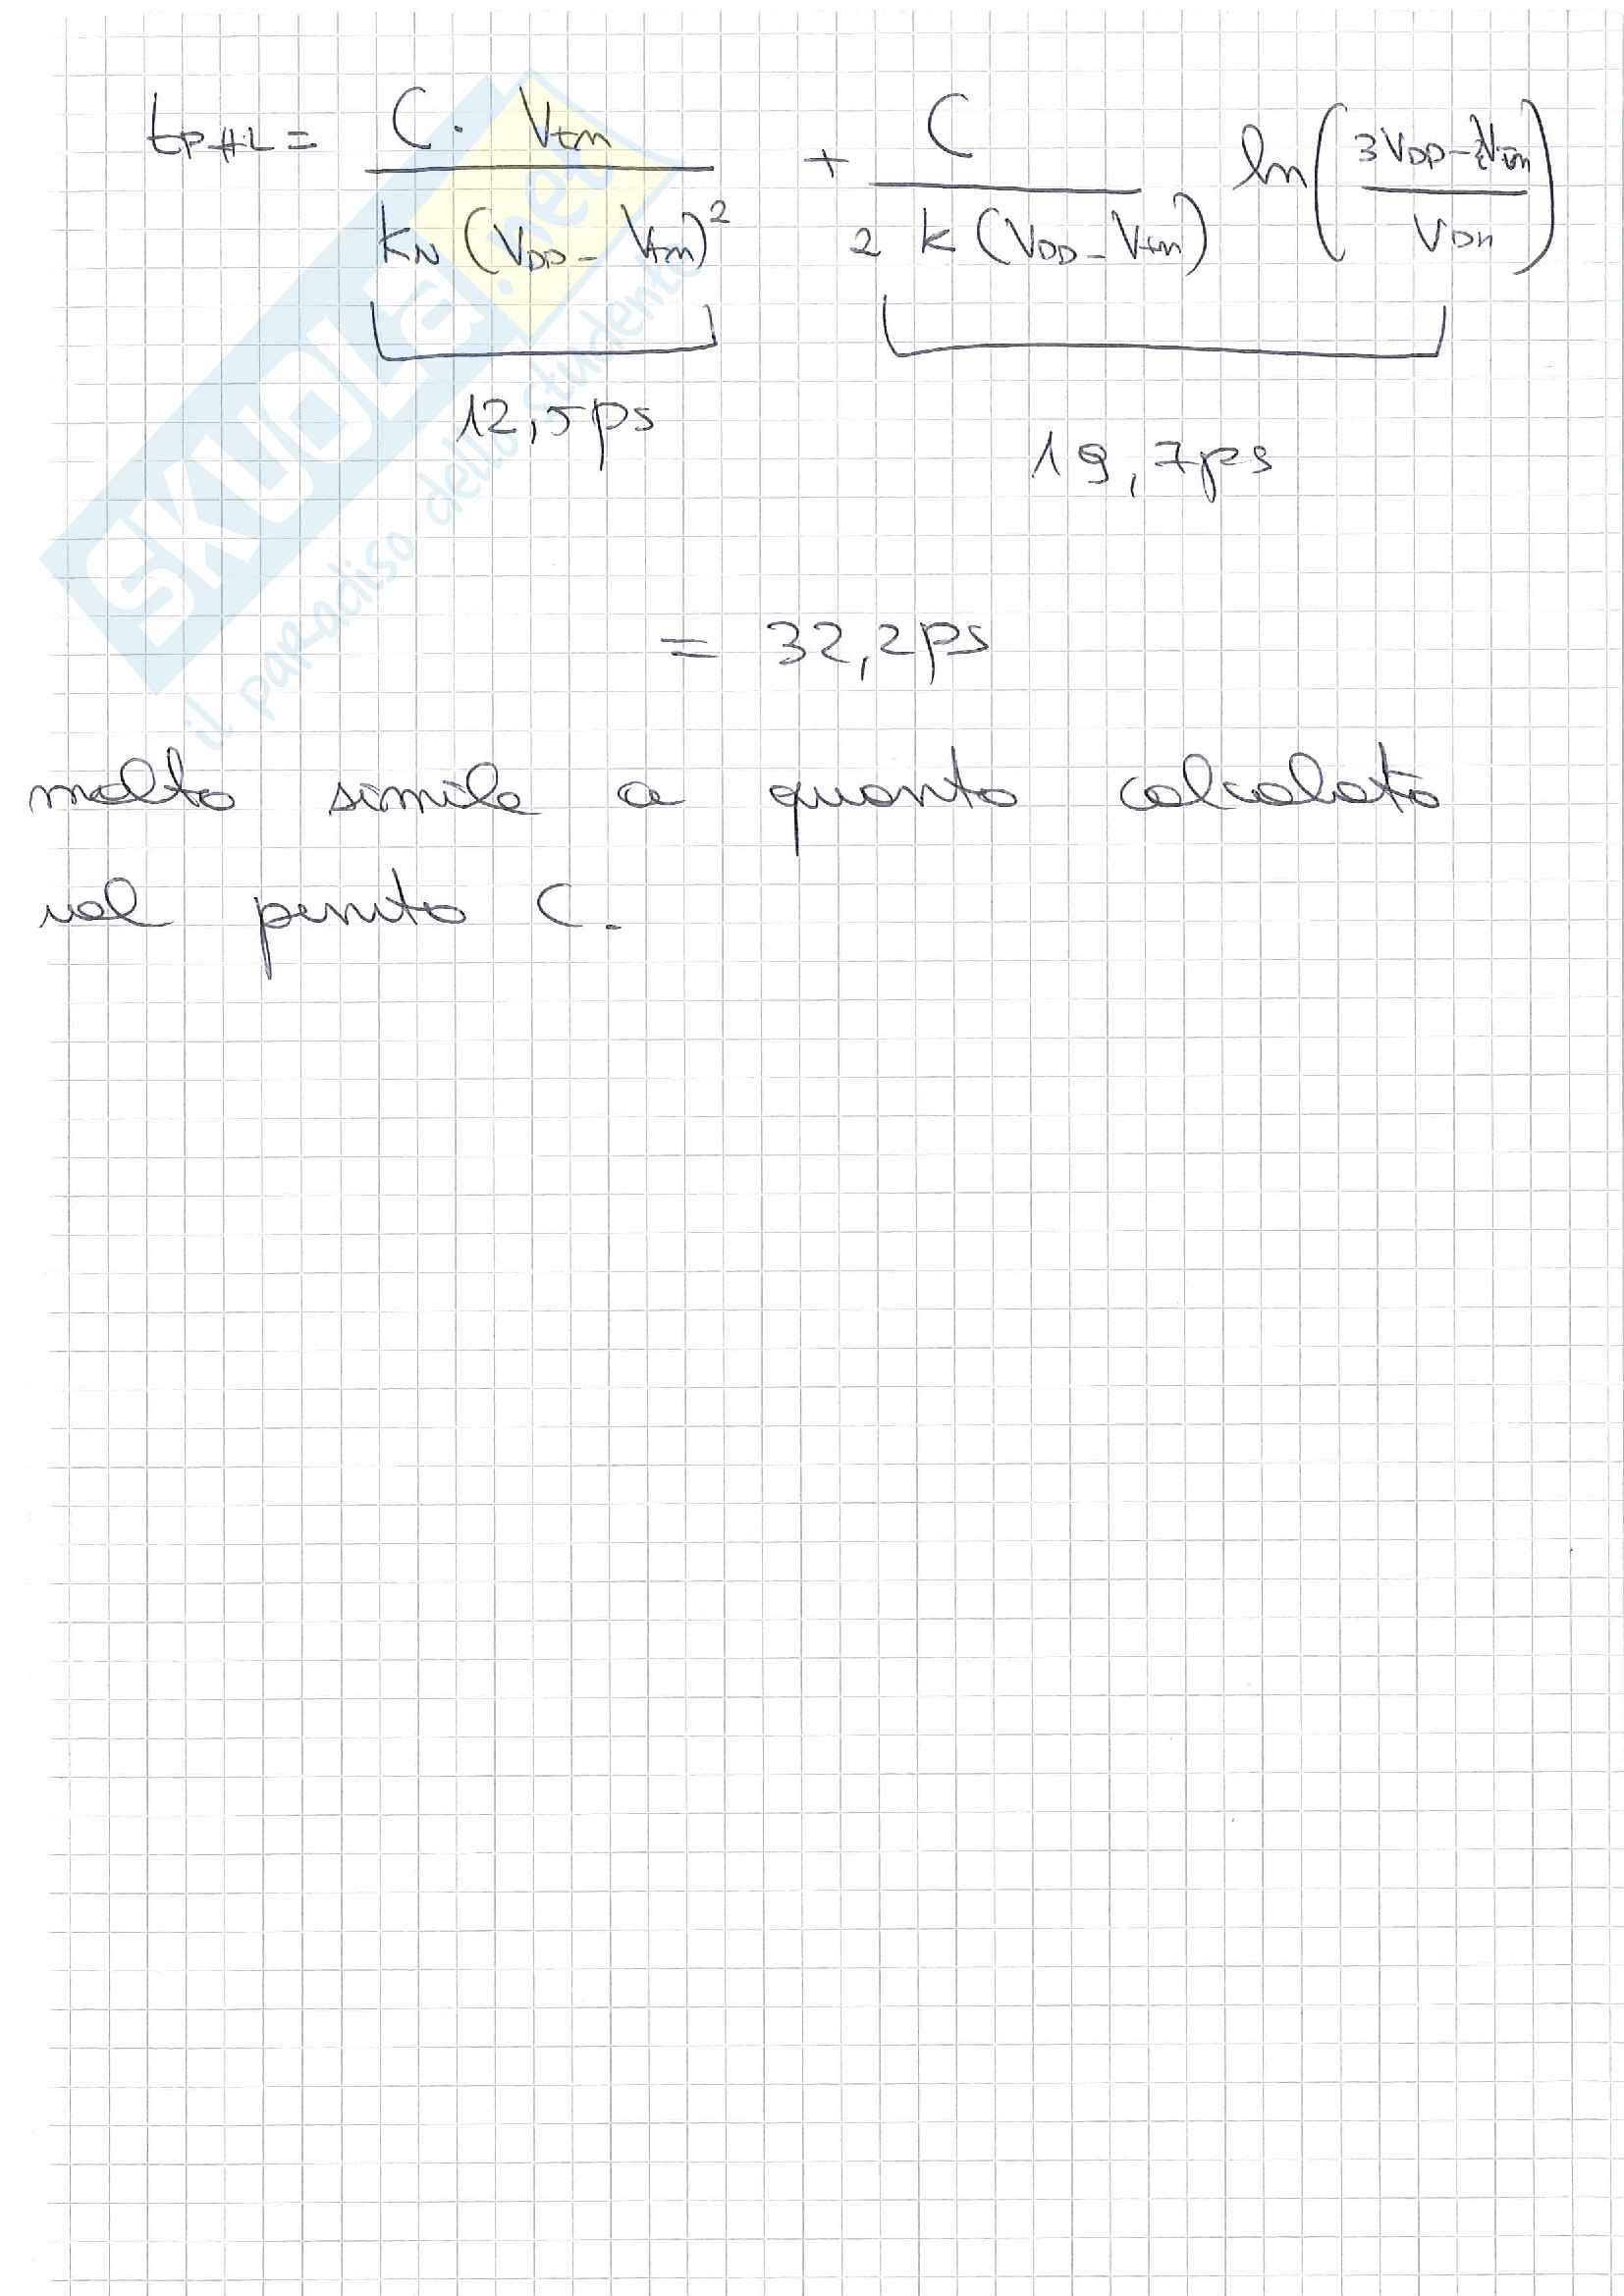 tpHL = C · Vtn / kN (VDD - Vtn)² + C / 2 k (VDD - Vtn) ln( 3VDD - Vtn / VDD )
12,5ps
19,7ps
= 32,2ps
molto simile a quanto calcolato
nel punto C.
SKUOLA.net
il paradiso dello studente